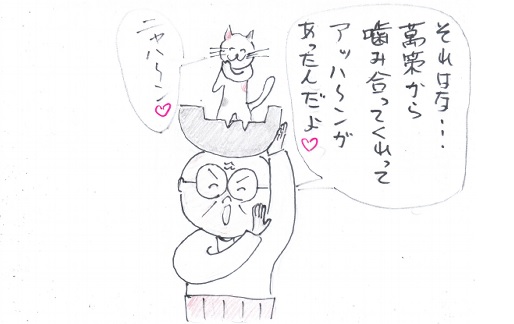 それはな・・・
萬策から
噛み合ってくれって
アッハ〜ンが
あったんだよ♡
ニャハ〜ン♡